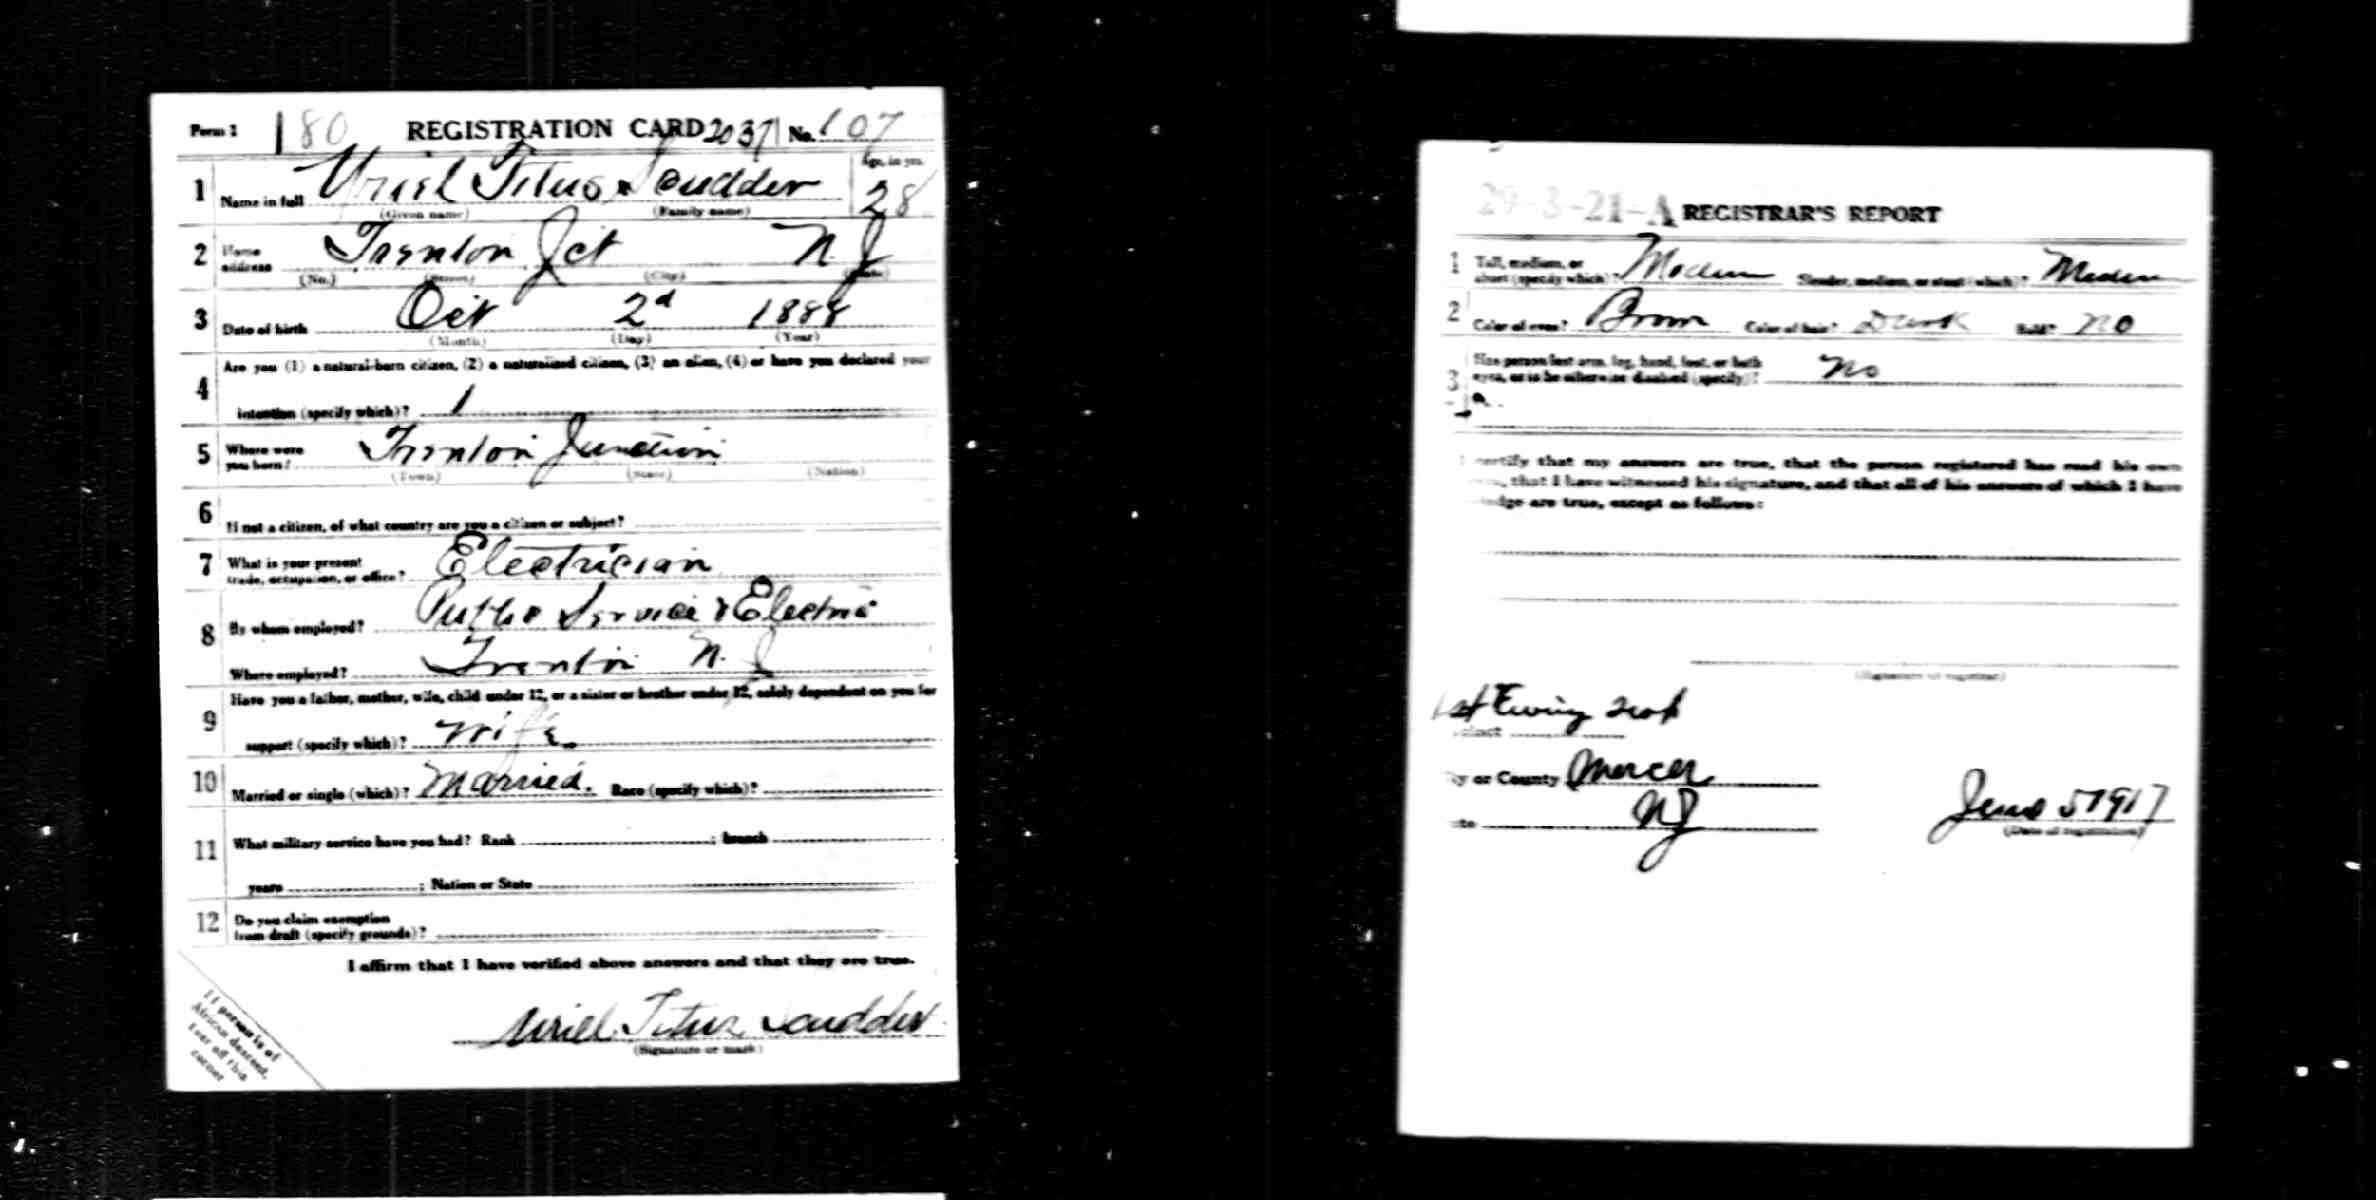 Form 1 180 REGISTRATION CARD 2037 No. 107
1 Name in full Uriel Titus Scudder Age, in yrs. 28
(Given name) (Family name)
2 Home address Trenton Jct N.J
(No.) (Street) (City) (State)
3 Date of birth Oct 2d 1888
(Month) (Day) (Year)
4 Are you (1) a natural-born citizen, (2) a naturalized citizen, (3) an alien, (4) or have you declared your
intention (specify which)? 1
5 Where were you born? Trenton Junction
(Town) (State) (Nation)
6 If not a citizen, of what country are you a citizen or subject?
7 What is your present
trade, occupation, or office? Electrician
8 By whom employed? Public Service Electric
Where employed? Trenton N. J
9 Have you a father, mother, wife, child under 12, or a sister or brother under 12, solely dependent on you for
support (specify which)? Wife
10 Married or single (which)? Married. Race (specify which)?
11 What military service have you had? Rank ; branch
years ; Nation or State
12 Do you claim exemption
from draft (specify grounds)?
I affirm that I have verified above answers and that they are true.
Uriel Titus Scudder
(Signature or mark)
If person is of
African descent,
tear off this
corner
29-3-21-A REGISTRAR'S REPORT
1 Tall, medium, or
short (specify which)? Medium Slender, medium, or stout (which)? Medium
2 Color of eyes? Brown Color of hair? Dark Bald? No
3 Has person lost arm, leg, hand, foot, or both
eyes, or is he otherwise disabled (specify)? No
I certify that my answers are true, that the person registered has read his own
, that I have witnessed his signature, and that all of his answers of which I have
ledge are true, except as follows:
(Signature of registrar)
1st Ewing
cinct
ty or County Mercer
te NJ
June 5 1917
(Date of registration)